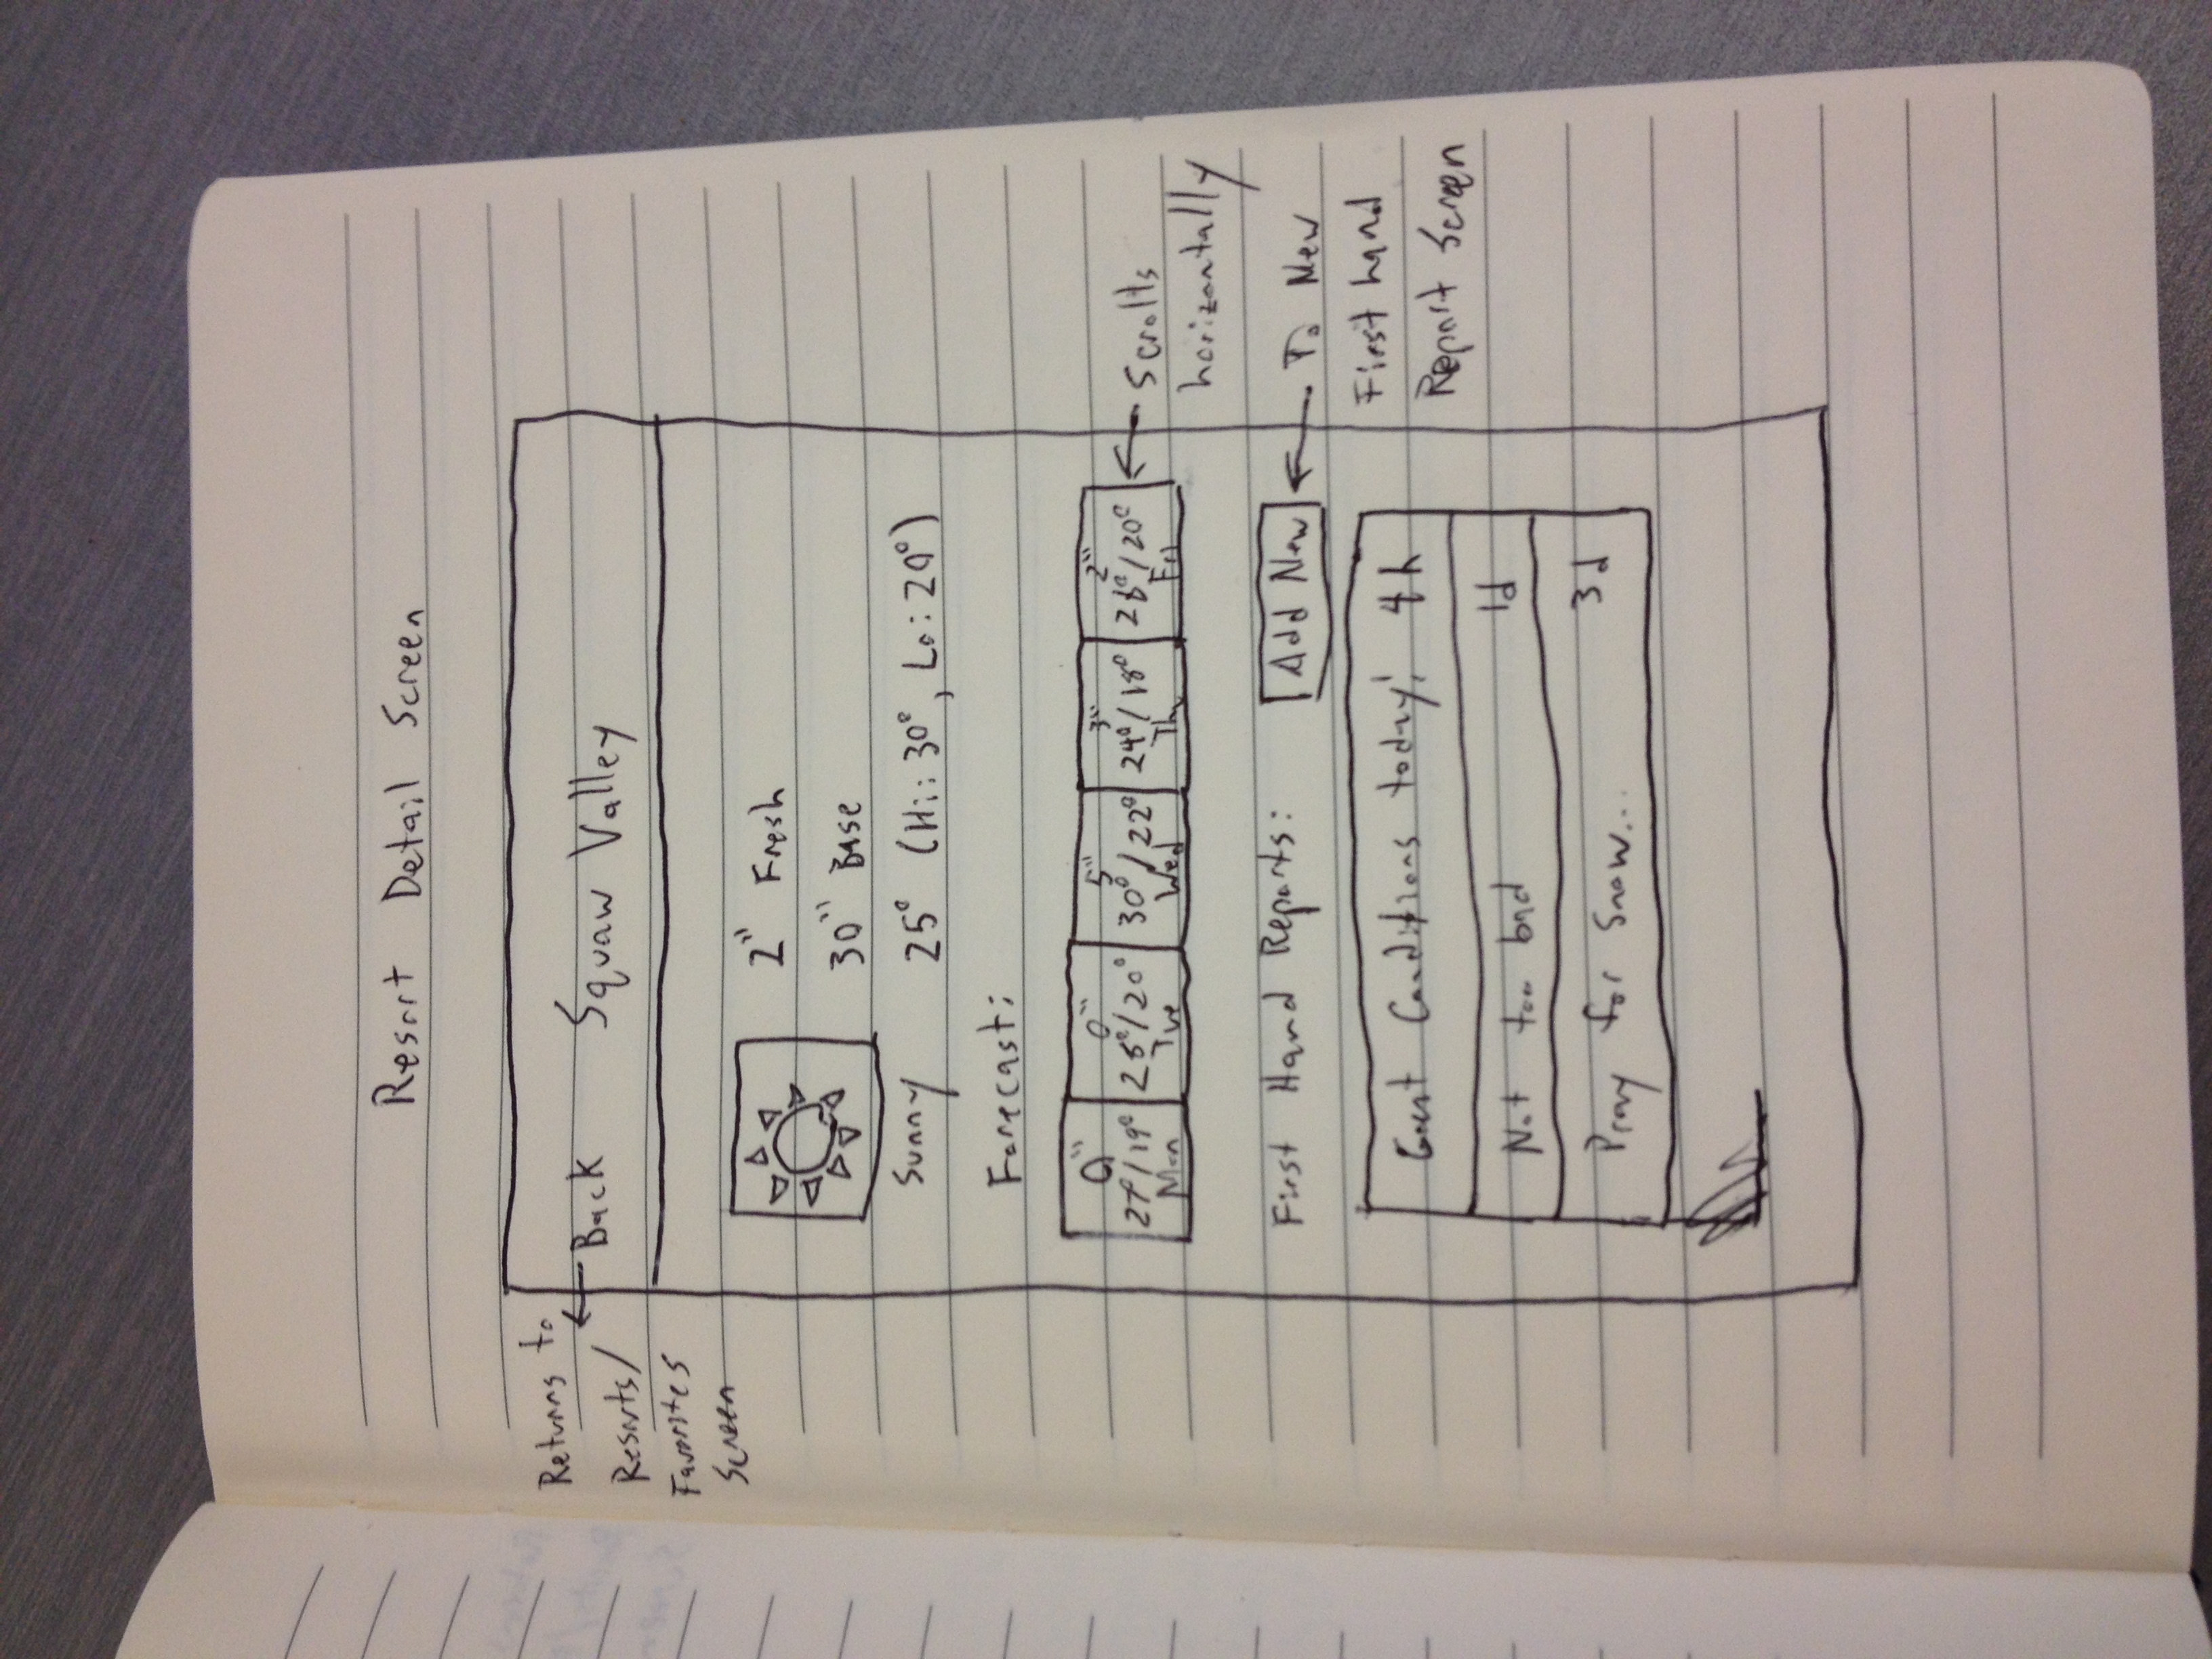 Resort Detail Screen
Returns to
Resorts/
Favorites
Screen
Back Squaw Valley
2" Fresh
30" Base
Sunny 25° (Hi: 30°, Lo: 20°)
Forecast:
0" 0" 5" 3" 2"
27°/19° /20° 30°/22° 24°/18° /20°
Mon Tue Wed Th Fri
Scrolls
horizontally
First Hand Reports: Add New
To New
First hand
Report Screen
Great Conditions today! 4h
Not too bad 1d
Pray for Snow... 3d